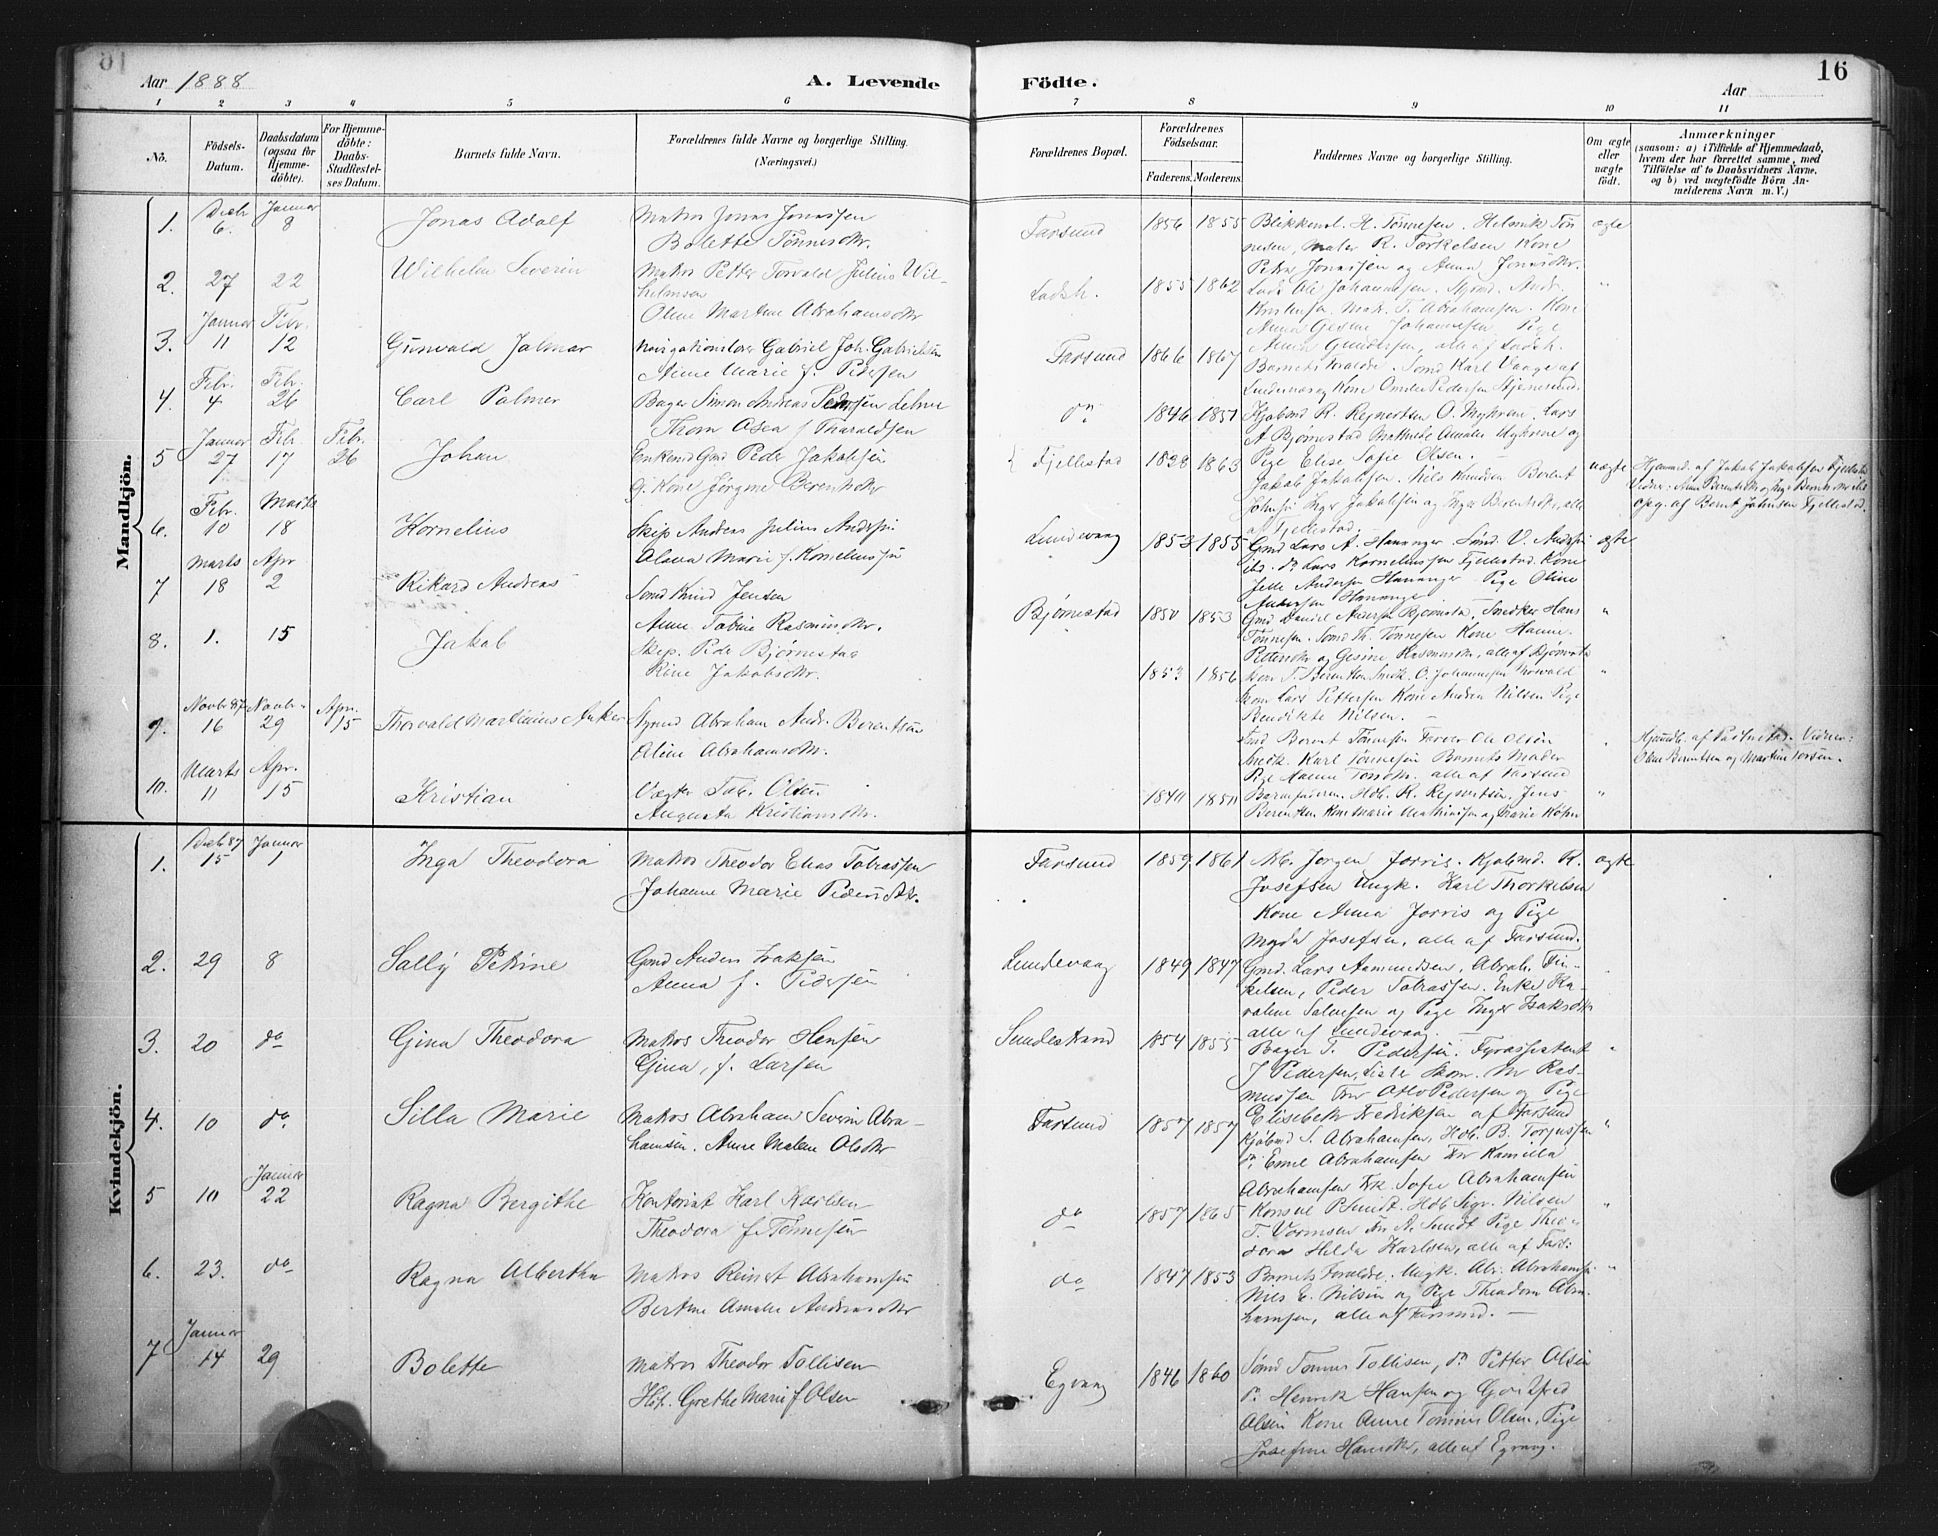 16
Aar 1888
A. Levende
Födte.
Aar
1 2 3 4 5 6 7 8 9 10 11
No.
Födsels-Datum.
Daabsdatum (ogsaa for Hjemme-döbte).
For Hjemme-döbte: Daabs-Stadfæstel-ses Datum.
Barnets fulde Navn.
Forældrenes fulde Navne og borgerlige Stilling. (Næringsvei.)
Forældrenes Bopæl.
Forældrenes Födselsaar.
Faderens. Moderens.
Faddernes Navne og borgerlige Stilling.
Om ægte eller uægte födt.
Anmærkninger
(saasom: a) i Tilfælde af Hjemmedaab, hvem der har forrettet samme, med Tilföielse af to Daabsvidners Navne, og b) ved uægtefödte Börn An-melderens Navn m. V.)
Mandkjön.
1. Decb. 6. Januar 8 Jonas Adolf Matros Jonas Jonassen
Bolette Tönnesdtr. Farsund 1856 1855 Blikkensl. H. Tönnesen. Helmik Tön
nesen, Maler R. Torkelsen Kone
Petra Jonassen og Anna Jonasdtr. ægte
2. 27 22 Wilhelm Severin Matros Petter Torvald Julius Wil-
helmsen
Oline Martine Abrahamsdtr Ladsh. 1855 1862 Lods Ole Johannesen.
Matr. T. Abrahamsen. Kone
Anna Gesine Johannesen, Pige
Anna Gundersen, alle af Ladsh. "
3. Januar 11 Febr. 12 Gunvald Jalmar Navigationslærer Gabriel Joh. Gabrielsen
Anne Marie f. Pedersen Farsund 1866 1867 Barnets Forældre. Sömd Karl Vaage af
Lindesnes og Kone
4. Febr. 4 Febr. 26 Carl Palmer Bager Simon Andreas Pedersen Lehne
Thom Asea f Tharaldsen do 1846 1851 Kjöbmd R. Reynertsen O. Myhren, Lars
A Bjørnestad Mathilde Amalie Myhrene og
Pige Elise Sofie Olsen.
5 Januar 27 Febr 17 Febr. 26 Johan Enkemd Gmd Peder Jakobsen
g. Kone Jørgine Berentsdtr Fjellestad 1828 1863 Jakob Jakobsen. Nils Knudsen Berent
Johnsen Inger Jakobsen og Inger Berentsdtr, alle
af Fjellestad. uægte Hjemmed. af Jakob Jakobsen Fjellestad
Vidner: Anne Berentsdtr og Inger Berentsdtr
Opg. af Bernt Johnsen Fjellestad.
6. Febr. 10 Marts 18 Kornelius Skip Andreas Julius Andersen
Olava Marie f. Korneliussen Lundevaag 1853 1855 Gmd Lars A. Hananger. Sömd V. Andersen
do Lars Korneliussen Fjellestad. Kone
Jelle Andersen Hananger Pige Oline
Andersen Hananger ægte
7 Marts 18 Apr 2 Rikard Andreas Sömd Knud Jensen
Anne Tobine Rasmusdtr. Bjørnestad 1850 1853 Gmd Daniel Andersen Bjørnesta. Snedker Hans
Tönnesen. Sömd Th. Tönnesen Kone Hanne
Petersdtr og Gesine Rasmusdtr, alle af Bjørnesta "
8. 1. 15 Jakob Skip. Peder Bjørnestad
Rine Jakobsdtr. 1853 1856 Smedk. O. Johannesen
Lars Pettersen Kone Andrea Nilsen Pige
Bendikte Nilsen. "
9. Novbr 87 16 Novbr. 29 Apr. 15 Thorvald Martinius Anker Styrmd Abraham Andr. Berentsen
Oline Abrahamsdtr. Berent Tönnesen Farver Ole Olsen
Karl Tönnesen Barnets Moder
Pige Hanne alle af Farsund " Hjemdb. af Vidner:
Oline Berentsen og Martine Torsen.
10. Marts 11 Apr. 15 Kristian Vægter Tob. Olsen
Augusta Kristiansdtr. 1840 1850 Barnefaderen. Hdb. R. Reynertsen, Jens
Berentsen Kone Marie Mathiassen og Marie "
Kvindekjön.
1. Decb 87 15 Januar 1 Inga Theodora Matros Theodor Elias Tobiassen
Johanne Marie Pedersdtr. Farsund 1859 1861 Jorgen Jorris. Kjöbmd. R.
Josefsen Ungk. Karl Thorkelsen
Kone Anna Jorris og Pige
Magda Josefsen, alle af Farsund. ægte
2. 29 8 Sally Petrine Gmd Anders Isaksen
Anna f. Pedersen Lundevaag 1849 1847 Gmd. Lars Aamundsen, Abrah. Tor-
kelsen, Peder Tobiassen. Enke Ka-
roline Salvesen og Pige Inger Isaksdtr
alle af Lundevaag. "
3. 20 do Gina Theodora Matros Theodor Hansen
Gina, f. Larsen Sundestrand 1854 1855 Bager T. Pedersen. Fyrassistent
J Pedersen, Lister Skom. Mr Ras-
mussen Fru Otto Pedersen og Pige
Elisebeth Fredriksen af Farsund "
4. 10 do Silla Marie Matros Abraham Severin Abra-
hamsen. Anne Malene Olsdtr Farsund 1857 1857 Kjöbmd S. Abrahamsen, Hdb. B. Torjussen
do Emil Abrahamsen Fru Kamilla
Abrahamsen Frk. Sofie Abrahamsen "
5 10 Januar 22 Ragna Bergithe Kontorist Karl Karlsen
Theodora f. Tönnesen do 1857 1865 Konsul P Sundt. Hdb Sigv. Nilsen
T. Vormsen Fru A. Sundt Pige Theo-
dora Hilda Karlsen, alle af Fars: "
6. 23. do Ragna Albertha Matros Reinert Abrahamsen
Bertine Amalie Andreasdtr do 1847 1853 Barnets Forældre. Ungk. Abr. Abrahamsen
Nils E. Nilsen og Pige Theodora Abra-
hamsen, alle af Farsund. "
7 Januar 14 29 Bolette Matros Theodor Tollisen
Hst. Grethe Marie f Olsen Egvaag 1846 1860 Sömd Tönnes Tollisen, do Petter Olsen
do Henrik Hansen og Gottfred
Olsen Kone Anne Tomine Olsen, Pige
Josefine Hansdtr, alle af Egvaag.